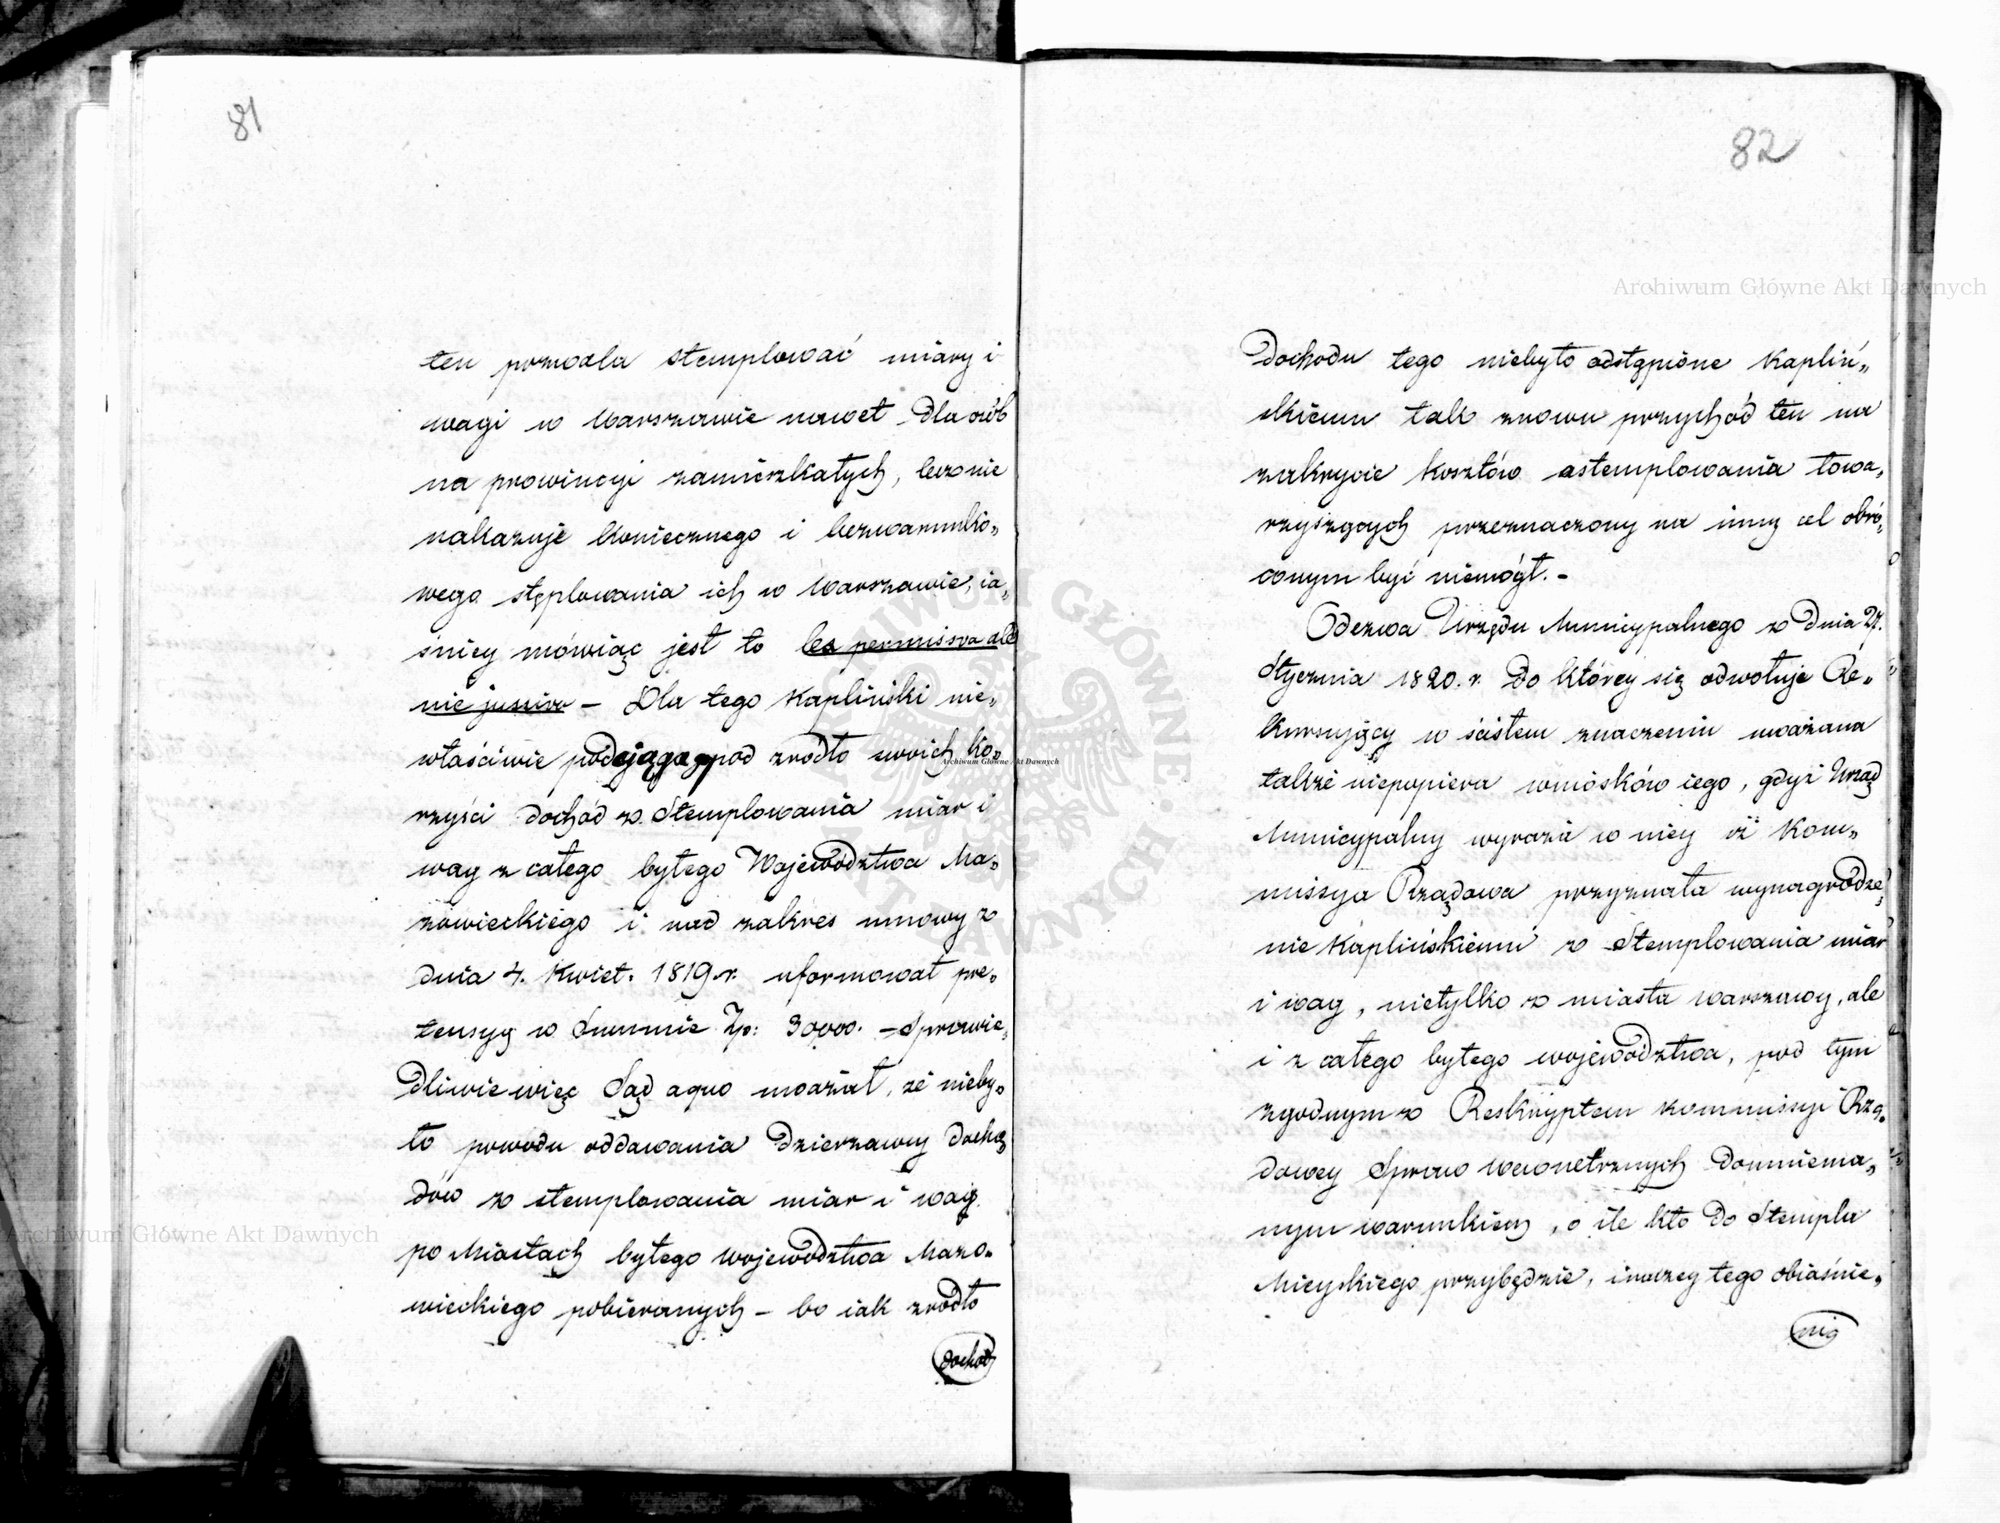 81
ten pozwala stemplować miary i
wagi w Warszawie nawet dla osób
na prowincyi zamieszkałych, lecz nie
nakazuje koniecznego i bezwarunko„
wego stęplowania ich w Warszawie, ia„
śniey mówiąc jest to lex permissva ale
nie jussiva – Dla tego Kapliński nie„
właściwie podciągając pod zrodło swoich ko„
rzyści dochód z Stemplowania miar i
wag z całego byłego Województwa Ma„
zowieckiego i nad zakres umowy z
dnia 4. Kwiet. 1819 r. uformował pre„
tensyą w Summie Zp: 30000. – Sprawie„
dliwie więc Sąd aquo uważał, że nieby„
ło powodu oddawania dzierzawcy docho„
dów z stemplowania miar i wag
po Miastach byłego województwa Mazo„
wieckiego pobieranych – bo iak zrodło
dochod
82
Dochodu tego niebyło odstąpione Kapliń„
skiemu tak znowu przychód ten na
zakrycie kosztów ostemplowania towa„
rzyszących przeznaczony na inny cel obró„
conym być niemógł. –
Odezwa Urzędu Municypalnego z dnia 27.
Stycznia 1820. r. do którey się odwołuje Re„
kursujący w ścisłem znaczeniu uważana
także niepopiera wniosków iego, gdyż Urząd
Municypalny wyraża w niey iż Kom„
missya Rządowa przyznała wynagrodze„
nie Kaplińskiemu z Stemplowania miar
i wag, nietylko z miasta Warszawy, ale
i z całego byłego województwa, pod tym
zgodnym z Reskryptem Kommissyi Rzą„
dowey Spraw Wewnetrznych domniema„
nym warunkiem, o ile kto do Stempla
Mieyskiego przybędzie, inaczey tego obiaśnie„
nia
Archiwum Główne Akt Dawnych